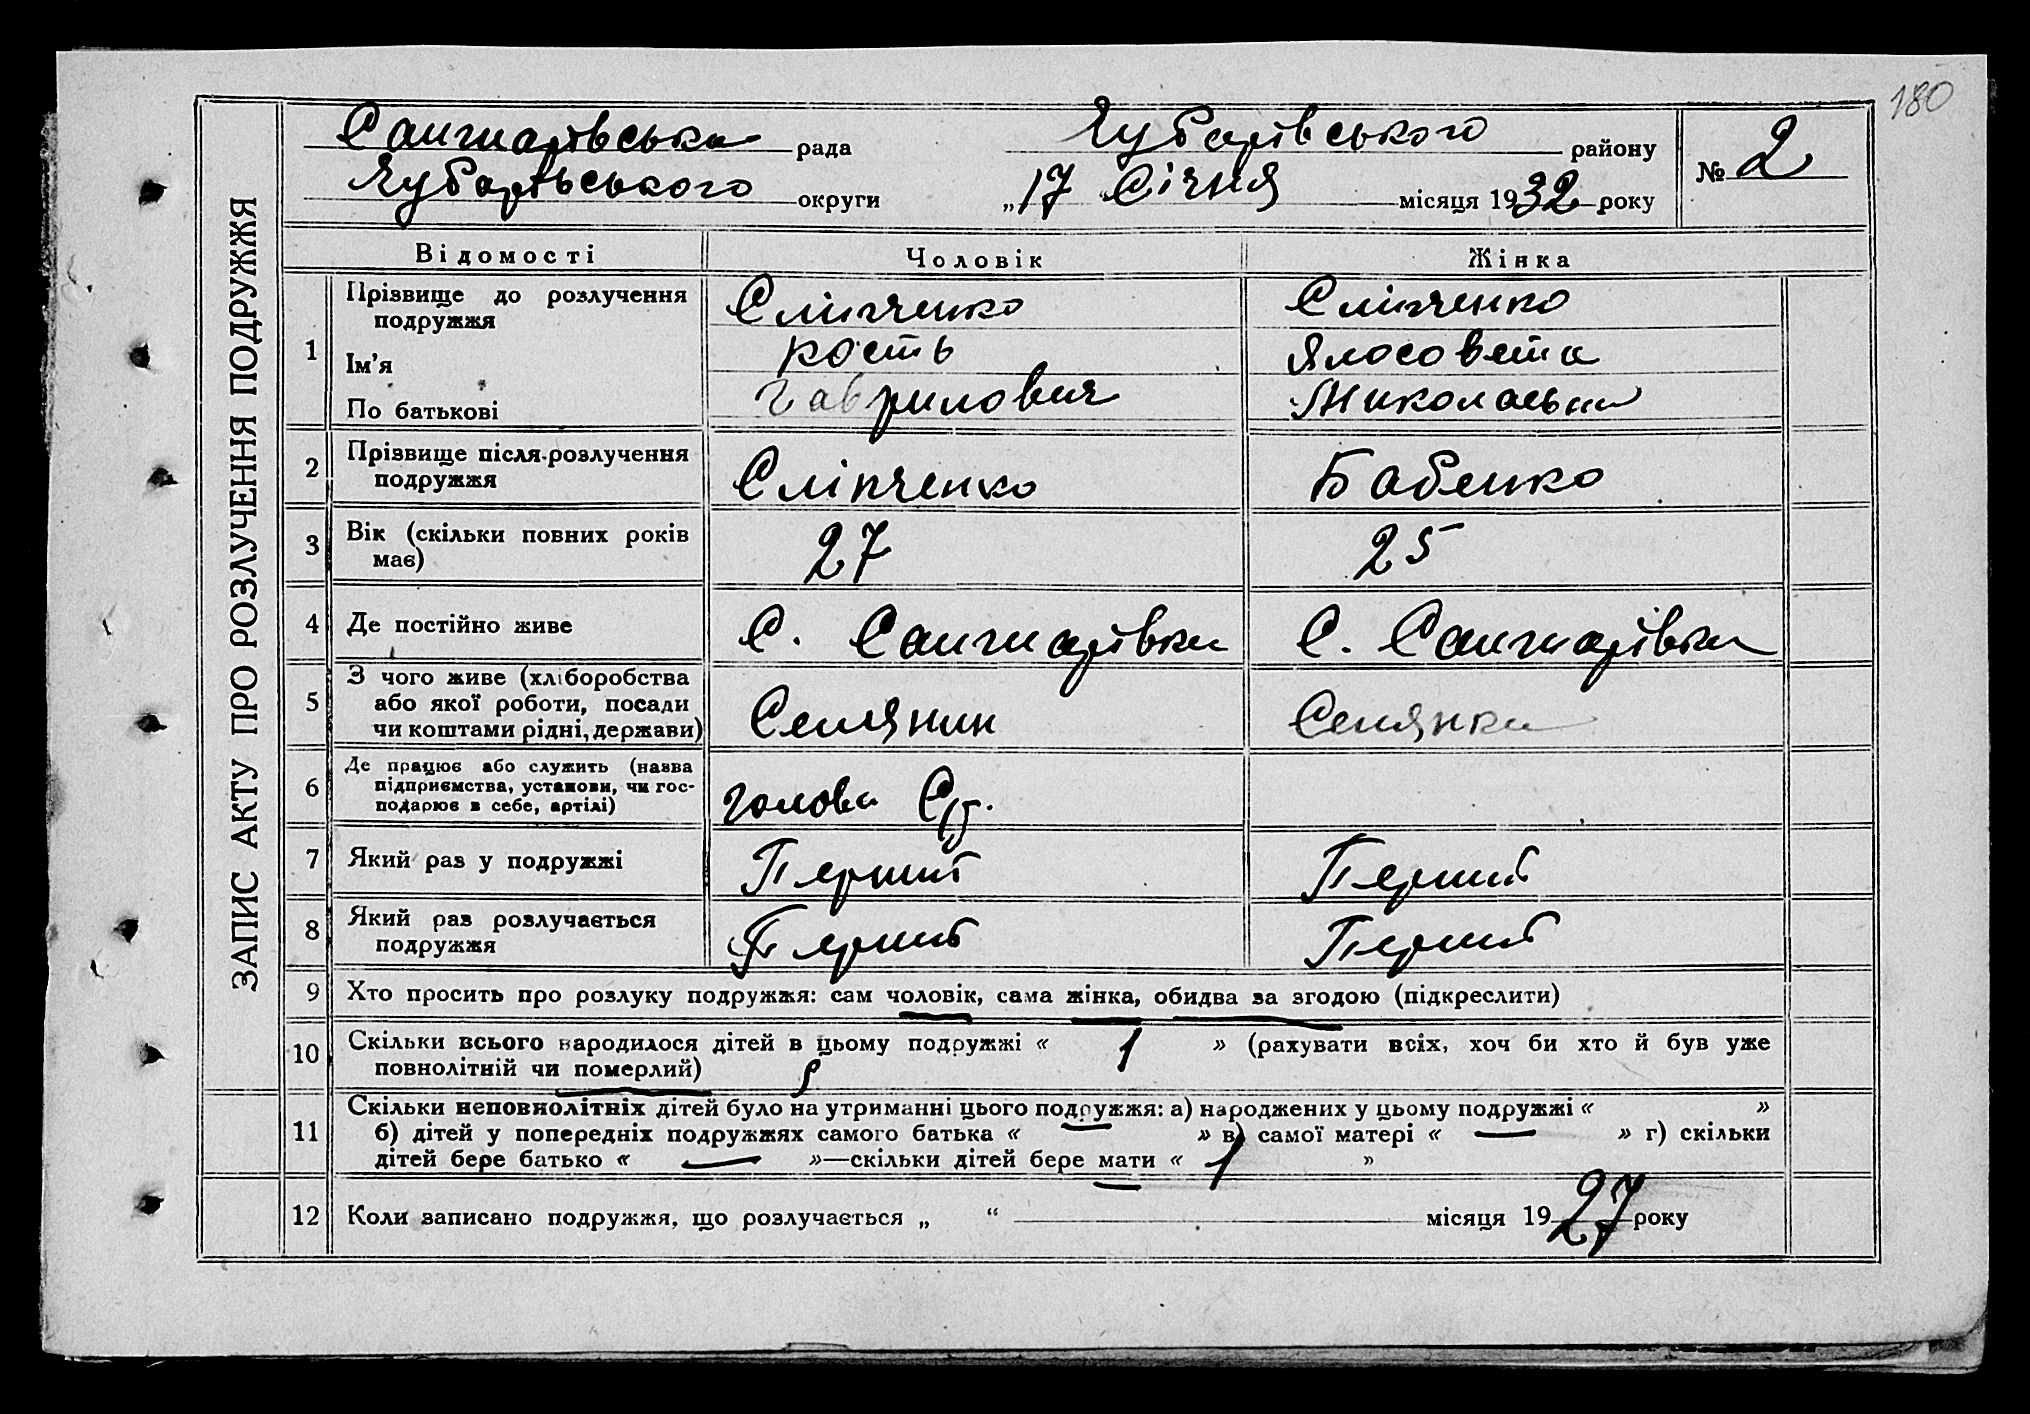 180
ЗАПИС АКТУ ПРО РОЗЛУЧЕННЯ ПОДРУЖЖЯ
Сангиарівська рада Чубарівського району № 2
Чубарівського округи „17“ Січня місяця 1932 року
Відомості Чоловік Жінка
1 Прізвище до розлучення подружжя Сліпченко Сліпченко
Ім'я Кость Ялосовета
По батькові Гаврилович Миколаевна
2 Прізвище після розлучення подружжя Сліпченко Бабенко
3 Вік (скільки повних років має) 27 25
4 Де постійно живе С. Сангиарівка С. Сангиарівка
5 З чого живе (хліборобства або якої роботи, посади чи коштами рідні, держави) Селянин Селянка
6 Де працює або служить (назва підприємства, установи, чи господарює в себе, артілі) голова
7 Який раз у подружжі Перший Перший
8 Який раз розлучається подружжя Перший Перший
9 Хто просить про розлуку подружжя: сам чоловік, сама жінка, обидва за згодою (підкреслити)
10 Скільки всього народилося дітей в цьому подружжі « 1 » (рахувати всіх, хоч би хто й був уже
повнолітній чи померлий)
11 Скільки неповнолітніх дітей було на утриманні цього подружжя: а) народжених у цьому подружжі « »
б) дітей у попередніх подружжях самого батька « — » в) самої матері « — » г) скільки
дітей бере батько « — »—скільки дітей бере мати « 1 »
12 Коли записано подружжя, що розлучається „ “ місяця 1927 року